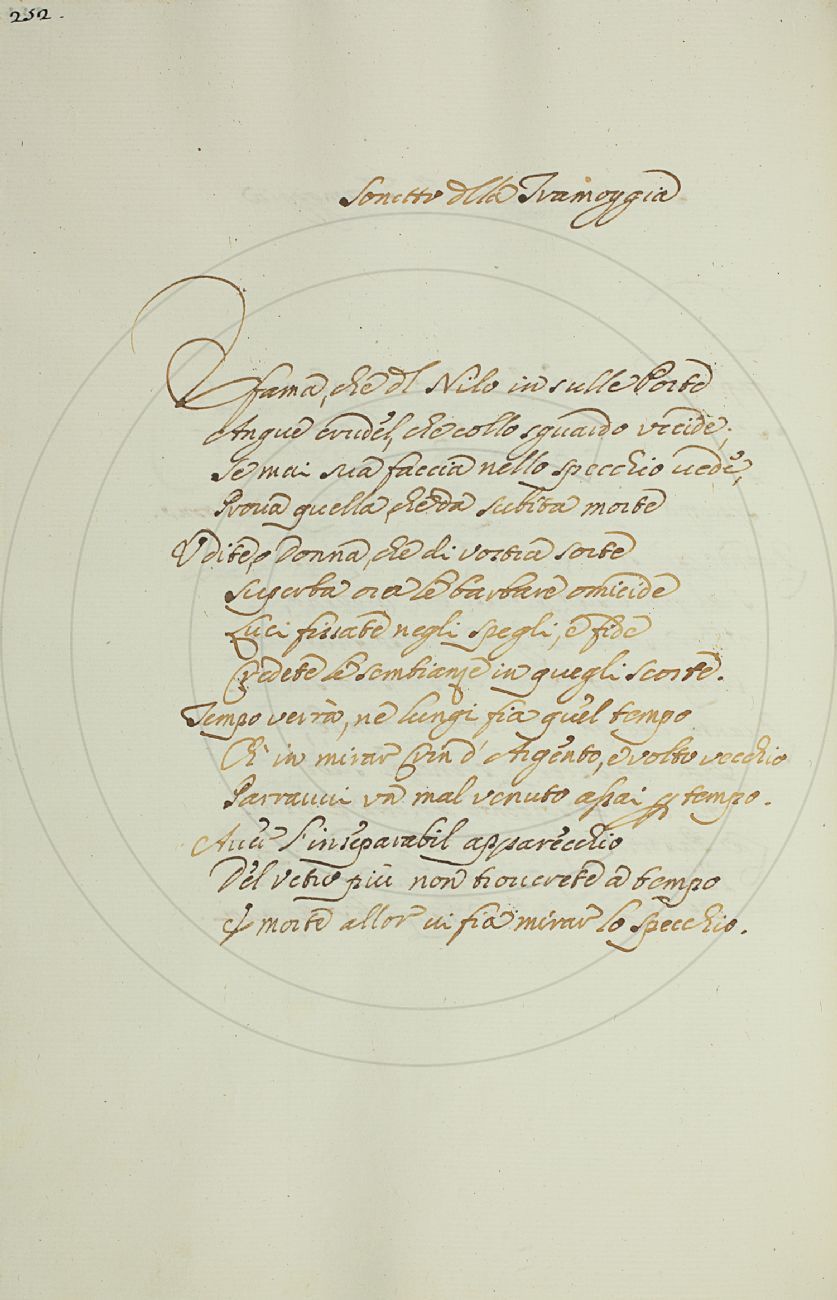 252.
Sonetto dlla Tramoggia
È fama, che dl Nilo in sulle Porte
Angue crudel, che collo sguardo vccide;
Se mai sua faccia nello specchio uede,
Proua quella, che da subita morte
Vdite, o Donna, che di vostra sorte
superba ora le barbare omicide
Luci fissate negli spegli, e fide
Credete le sembianze in quegli scorte.
Tempo verrà, ne lungi fia quel tempo
Ch' in mirar Crin d' Argento, e volto vecchio
Parrauui vn mal venuto assai p tempo.
Auui l'inseparabil apparecchio
Del vetro più non trouerete a tempo
E morte allor ui fia mirar lo specchio.